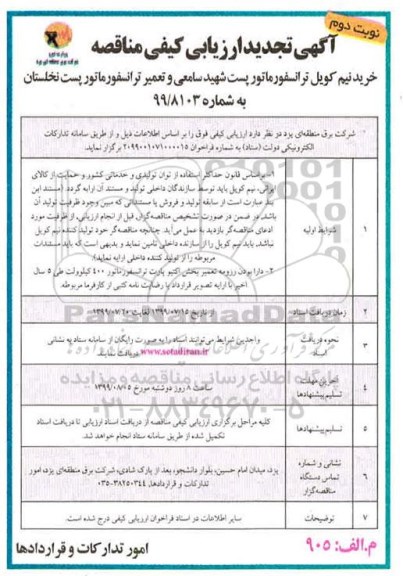 نوبت دوم
آگهی تجدید ارزیابی کیفی مناقصه
خرید نیم کویل ترانسفورماتور پست شهید سامعی و تعمیر ترانسفورماتور پست نخلستان
به شماره ۹۹/۸۱۰۳
شرکت برق منطقه‌ای یزد در نظر دارد ارزیابی کیفی فوق را بر اساس اطلاعات ذیل و از طریق سامانه تدارکات
الکترونیکی دولت (ستاد) به شماره فراخوان ۲۰۹۹۰۰۱۰۷۱۰۰۰۰۱۵ برگزار نماید.
۱
شرایط اولیه
۱- براساس قانون حداکثر استفاده از توان تولیدی و خدماتی کشور و حمایت از کالای
ایرانی، نیم کویل باید توسط سازندگان داخلی تولید و مستند آن ارایه گردد. (مستند این
بند عبارت است از سابقه تولید و فروش یا مستنداتی که مبین وجود ظرفیت تولید آن
باشد. در ضمن در صورت تشخیص مناقصه‌گزار، قبل از انجام ارزیابی، از ظرفیت مورد
ادعای مناقصه‌گر بازدید به عمل می‌آید. چنانچه مناقصه‌گر خود تولید کننده نیم کویل
نباشد، باید نیم کویل را از سازنده داخلی تامین نماید و بدیهی است که باید مستندات
مربوطه را از تولید کننده داخلی ارایه نماید).
۲- دارا بودن رزومه تعمیر بخش اکتیو پارت ترانسفورماتور ۴۰۰ کیلوولت طی ۵ سال
اخیر با ارایه تصویر قرارداد یا رضایت نامه کتبی از کارفرما مربوطه.
۲
زمان دریافت اسناد
از تاریخ ۱۳۹۹/۰۷/۱۵ لغایت ۱۳۹۹/۰۷/۲۰
۳
نحوه دریافت اسناد
واجدین شرایط می‌توانند اسناد را به صورت رایگان از سامانه ستاد به نشانی
www.setadiran.ir دریافت نمایند.
۴
آخرین مهلت تسلیم پیشنهادها
ساعت ۸ روز دوشنبه مورخ ۱۳۹۹/۰۸/۰۵
۵
تسلیم پیشنهادها
کلیه مراحل برگزاری ارزیابی کیفی مناقصه از دریافت اسناد ارزیابی تا دریافت اسناد
تکمیل شده از طریق سامانه ستاد انجام خواهد شد.
۶
نشانی و شماره تماس دستگاه مناقصه‌گزار
یزد، میدان امام حسین، بلوار دانشجو، بعد از پارک شادی، شرکت برق منطقه‌ای یزد، امور
تدارکات و قراردادها، ۳۸۲۵۰۳۴۴-۰۳۵
۷
توضیحات
سایر اطلاعات در اسناد فراخوان ارزیابی کیفی درج شده است.
م.الف: ۹۰۵
امور تدارکات و قراردادها
پایگاه اطلاع رسانی مناقصه و مزایده
۰۲۱-۸۸۳۴۹۶۷۰-۵